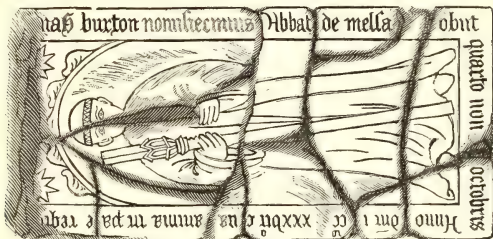 nas burton nonusdecimus Abbas de melsa obiit
quarto non octobris
Anno i cc xxxvii anima in